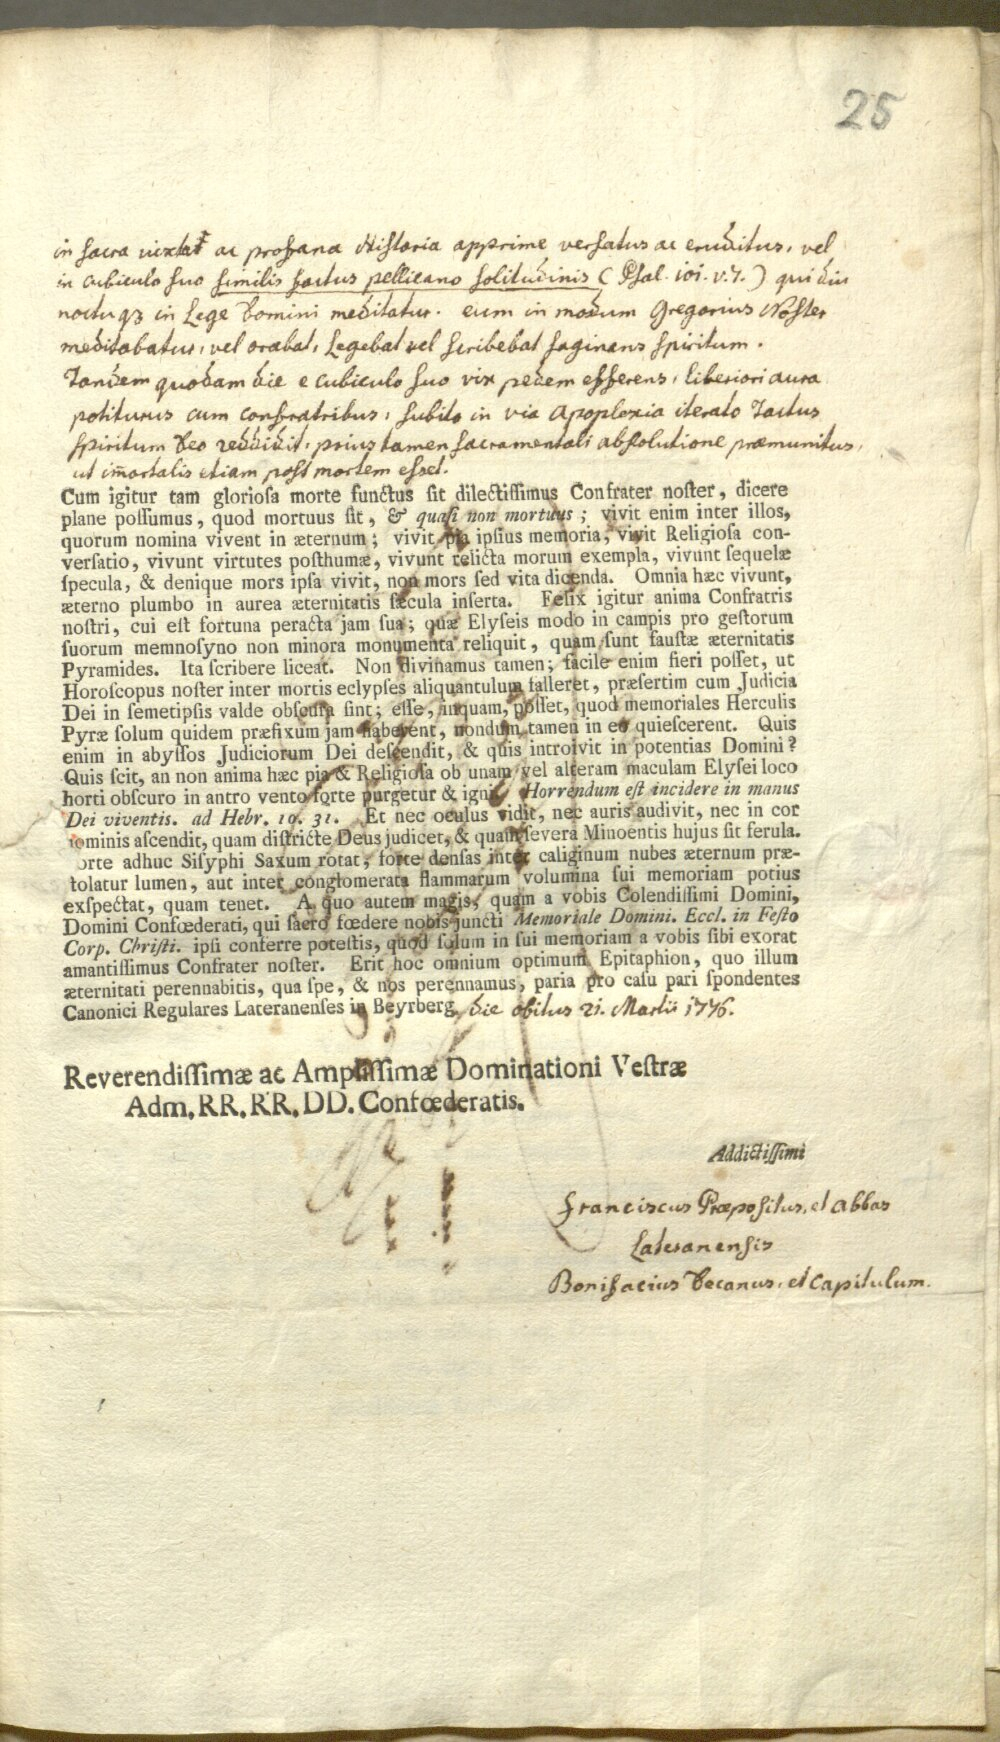 25
in sacra ac profana Historia apprime versatus ac eruditus, vel
in cubiculo suo similis factus pellicano solitudinis (Psal. 101. v. 7.) qui diu
noctuqȝ in Lege Domini meditatur. eum in modum Gregorius Noster
meditabatur, vel orabat, Legebat vel scribebat saginans spiritum.
Tandem quodam die e cubiculo suo vix pedem efferens, liberiori aura
potiturus cum confratribus, subito in via apoplexia iterato Tactus
spiritum Deo reddidit, prius tamen sacramentali absolutione præmunitus,
ut im̄ortalis etiam post mortem esset.
Cum igitur tam glorioſa morte functus ſit dilectiſſimus Confrater noſter, dicere
plane poſſumus, quod mortuus ſit, & quaſi non mortuus; vivit enim inter illos,
quorum nomina vivent in æternum; vivit pia ipſius memoria, vivit Religioſa con-
verſatio, vivunt virtutes poſthumæ, vivunt relicta morum exempla, vivunt ſequelæ
ſpecula, & denique mors ipſa vivit, non mors ſed vita dicenda. Omnia hæc vivunt,
æterno plumbo in aurea æternitatis ſæcula inſerta. Felix igitur anima Confratris
noſtri, cui eſt fortuna peracta jam ſua; quæ Elyſeis modo in campis pro geſtorum
ſuorum memnoſyno non minora monumenta reliquit, quam ſunt fauſtæ æternitatis
Pyramides. Ita ſcribere liceat. Non divinamus tamen; facile enim fieri poſſet, ut
Horoſcopus noſter inter mortis eclypſes aliquantulum falleret, præſertim cum Judicia
Dei in ſemetipſis valde obſcura ſint; eſſe, inquam, poſſet, quod memoriales Herculis
Pyræ ſolum quidem præfixum jam haberent, nondum tamen in eo quieſcerent. Quis
enim in abyſſos Judiciorum Dei deſcendit, & quis introivit in potentias Domini?
Quis ſcit, an non anima hæc pia & Religioſa ob unam vel alteram maculam Elyſei loco
horti obſcuro in antro vento forte purgetur & igni. Horrendum eſt incidere in manus
Dei viventis. ad Hebr. 10. 31. Et nec oculus vidit, nec auris audivit, nec in cor
iominis aſcendit, quam diſtricte Deus judicet, & quam ſevera Minoentis hujus ſit ferula.
orte adhuc Siſyphi Saxum rotat, forte denſas inter caliginum nubes æternum præ-
tolatur lumen, aut inter conglomerata flammarum volumina ſui memoriam potius
exſpectat, quam tenet. A quo autem magis, quam a vobis Colendiſſimi Domini,
Domini Confœderati, qui ſacro fœdere nobis juncti Memoriale Domini. Eccl. in Feſto
Corp. Chriſti. ipſi conferre poteſtis, quod ſolum in ſui memoriam a vobis ſibi exorat
amantiſſimus Confrater noſter. Erit hoc omnium optimum Epitaphion, quo illum
æternitati perennabitis, qua ſpe, & nos perennamus, paria pro caſu pari ſpondentes
Canonici Regulares Lateranenſes in Beyrberg, die obitus 21. Martii 1776.
Reverendiſſimæ ac Ampliſſimæ Dominationi Veſtræ
Adm. RR. RR. DD. Confœderatis.
Addictiſſimi
Franciscus Præpositus, et Abbas
Lateranensis
Bonifacius Decanus, et Capitulum.